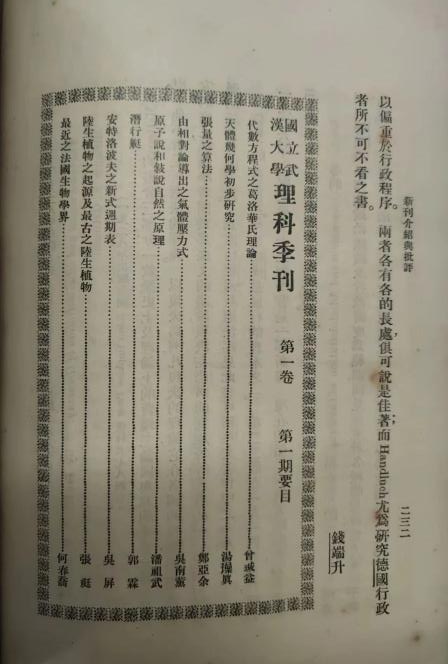 新刊介紹與批評　二三二
以偏重於行政程序。兩者各有各的長處，俱可說是佳著；而Handbuch尤爲研究德國行政
者所不可不看之書。
錢端升
國立武
漢大學
理科季刊　第一卷　第一期要目
代數方程式之葛洛華氏理論……曾瑊益
天體幾何學初步研究……湯璪真
張量之算法……鄭亞余
由相對論導出之氣體壓力方式……吳南薰
原子說和 說自然之原理……潘祖武
潛行艇……郭霖
安特洛波夫之新式週期表……吳屏
陸生植物之起源及最古之陸生植物……張珽
最近之法國生物學界……何春喬